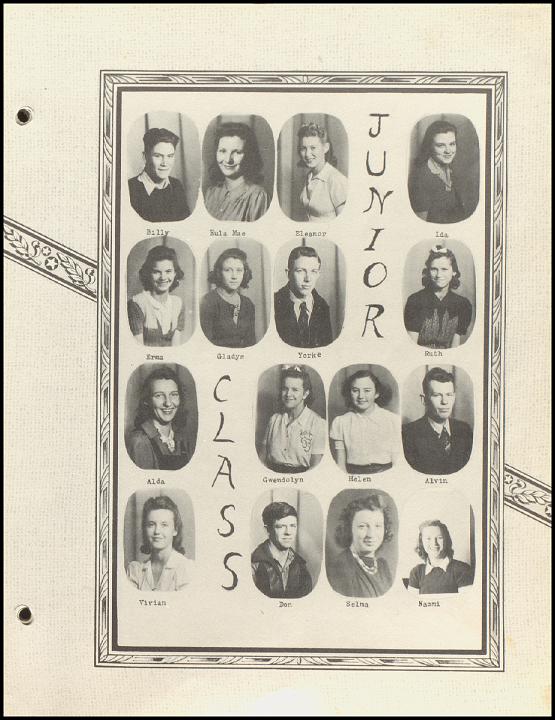 JUNIOR
Billy Eula Mae Eleanor Ida
Erma Gladys Yorke Ruth
CLASS
Alda Gwendolyn Helen Alvin
Virian Don Selma Naomi